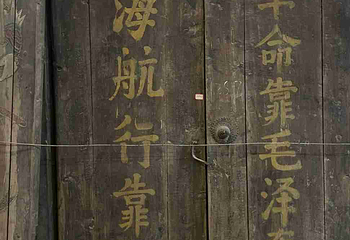 海航行靠
革命靠毛泽